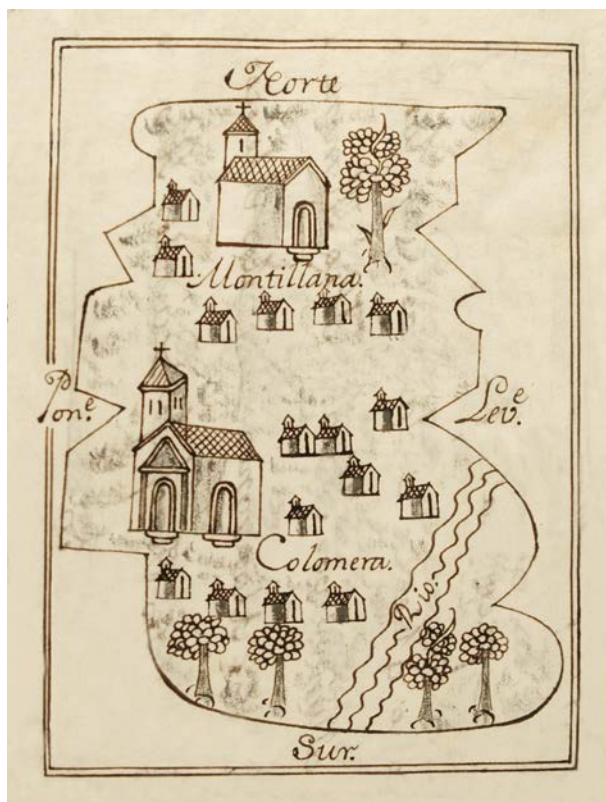 Norte
Montillana.
Pon.e
Lev.e
Colomera.
Rio.
Sur.